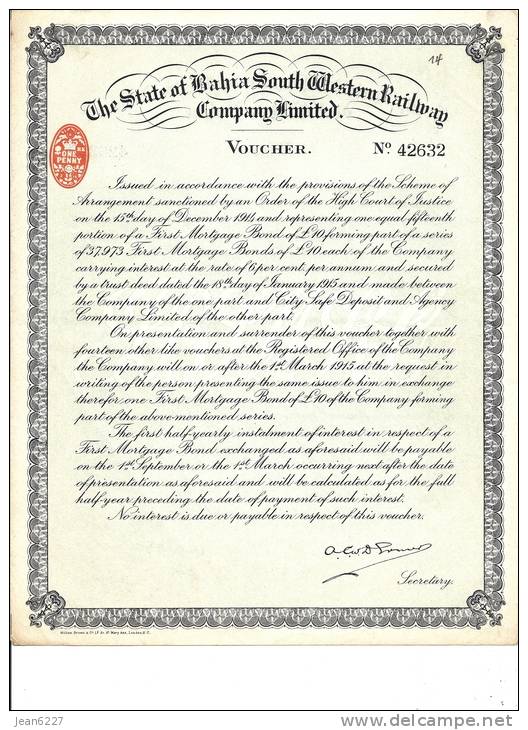 14
The State of Bahia South Western Railway
Company Limited.
VOUCHER. No 42632
ONE
PENNY
Issued in accordance with the provisions of the Scheme of
Arrangement sanctioned by an Order of the High Court of Justice
on the 15th day of December 1914 and representing one equal fifteenth
portion of a First Mortgage Bond of £10 forming part of a series
of 37,973 First Mortgage Bonds of £10 each of the Company
carrying interest at the rate of 6 per cent. per annum and secured
by a trust deed dated the 18th day of January 1915 and made between
the Company of the one part and City Safe Deposit and Agency
Company Limited of the other part.
On presentation and surrender of this voucher together with
fourteen other like vouchers at the Registered Office of the Company
the Company will on or after the 1st March 1915 at the request in
writing of the person presenting the same issue to him in exchange
therefor one First Mortgage Bond of £10 of the Company forming
part of the above-mentioned series.
The first half-yearly instalment of interest in respect of a
First Mortgage Bond exchanged as aforesaid will be payable
on the 1st September or the 1st March occurring next after the date
of presentation as aforesaid and will be calculated as for the full
half-year preceding the date of payment of such interest.
No interest is due or payable in respect of this voucher.
Secretary.
jean6227
delcampe.net